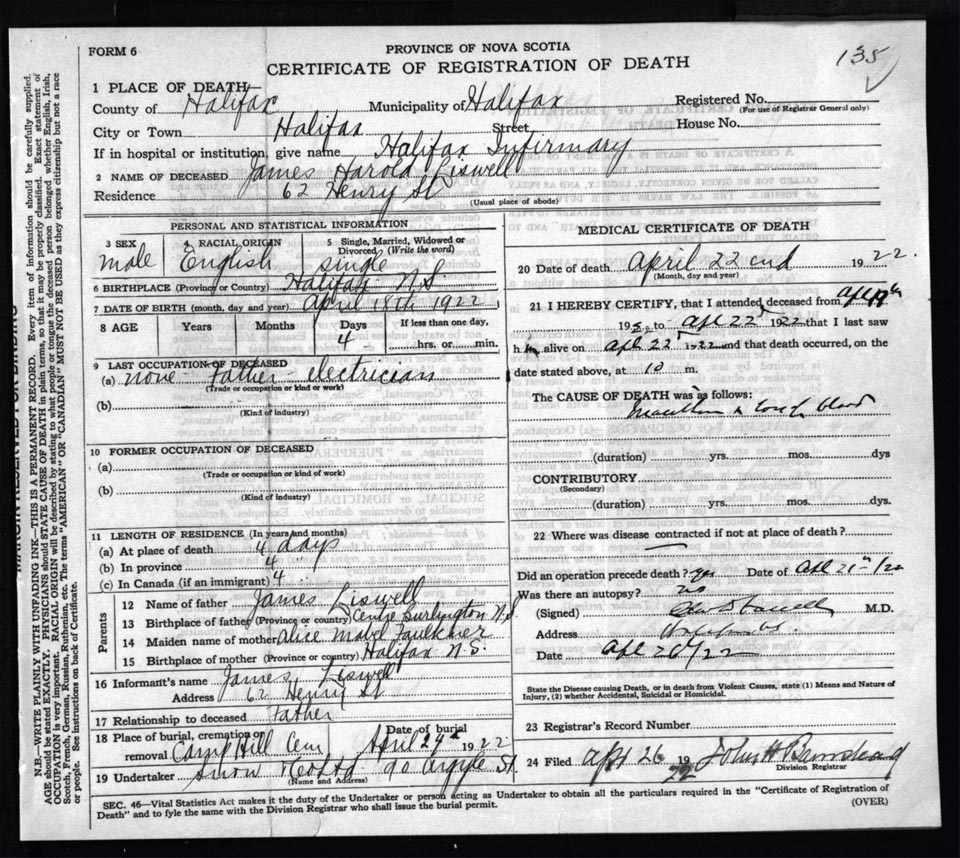 FORM 6
PROVINCE OF NOVA SCOTIA
135
CERTIFICATE OF REGISTRATION OF DEATH
1 PLACE OF DEATH
County of Halifax Municipality of Halifax Registered No.
(For use of Registrar General only)
City or Town Halifax Street House No.
If in hospital or institution, give name Halifax Infirmary
2 NAME OF DECEASED James Harold Liswell
Residence 62 Henry St
(Usual place of abode)
PERSONAL AND STATISTICAL INFORMATION
3 SEX 4 RACIAL ORIGIN 5 Single, Married, Widowed or Divorced (Write the word)
male English single
6 BIRTHPLACE (Province or Country) Halifax N S
7 DATE OF BIRTH (month, day and year) April 18th 1922
8 AGE Years Months Days If less than one day,
4 hrs. or min.
9 LAST OCCUPATION OF DECEASED
(a) none Father electrician
(Trade or occupation or kind of work)
(b)
(Kind of industry)
10 FORMER OCCUPATION OF DECEASED
(a)
(Trade or occupation or kind of work)
(b)
(Kind of industry)
11 LENGTH OF RESIDENCE (In years and months)
(a) At place of death 4 days
(b) In province 4
(c) In Canada (if an immigrant) 4
Parents
12 Name of father James Liswell
13 Birthplace of father (Province or country) Centre Burlington N S
14 Maiden name of mother Alice Mabel Faulkner
15 Birthplace of mother (Province or country) Halifax N.S.
16 Informant's name James Liswell
Address 62 Henry St
17 Relationship to deceased Father
18 Place of burial, cremation or removal Camp Hill Cem Date of burial April 24 1922
19 Undertaker Snow 90 Argyle St.
(Name and Address)
MEDICAL CERTIFICATE OF DEATH
20 Date of death April 22 1922.
(Month, day and year)
21 I HEREBY CERTIFY, that I attended deceased from
19 to Apl 22 1922 that I last saw
h im alive on Apl 22 1922 and that death occurred, on the
date stated above, at 10 m.
The CAUSE OF DEATH was as follows:
(duration) yrs. mos. dys
CONTRIBUTORY
(Secondary)
(duration) yrs. mos. dys.
22 Where was disease contracted if not at place of death?
Did an operation precede death? yes Date of Apl 21
Was there an autopsy? no
(Signed) M.D.
Address
Date Apl 26/22
State the Disease causing Death, or in death from Violent Causes, state (1) Means and Nature of Injury, (2) whether Accidental, Suicidal or Homicidal.
23 Registrar's Record Number
24 Filed Apl 26 1922 John H Barnstead
Division Registrar
SEC. 46—Vital Statistics Act makes it the duty of the Undertaker or person acting as Undertaker to obtain all the particulars required in the "Certificate of Registration of
Death" and to fyle the same with the Division Registrar who shall issue the burial permit.
(OVER)
N.B.—WRITE PLAINLY WITH UNFADING INK—THIS IS A PERMANENT RECORD. Every item of information should be carefully supplied.
AGE should be stated EXACTLY. PHYSICIANS should STATE CAUSE OF DEATH in plain terms, so that it may be properly classified. Exact statement of
OCCUPATION is very important. RACIAL ORIGIN will be described by stating to what people or tongue the deceased person belonged whether English, Irish,
Scotch, French, German, Russian, Ruthenian, etc. The terms "AMERICAN" OR "CANADIAN" MUST NOT BE USED as they express citizenship but not a race
or people. See instructions on back of Certificate.